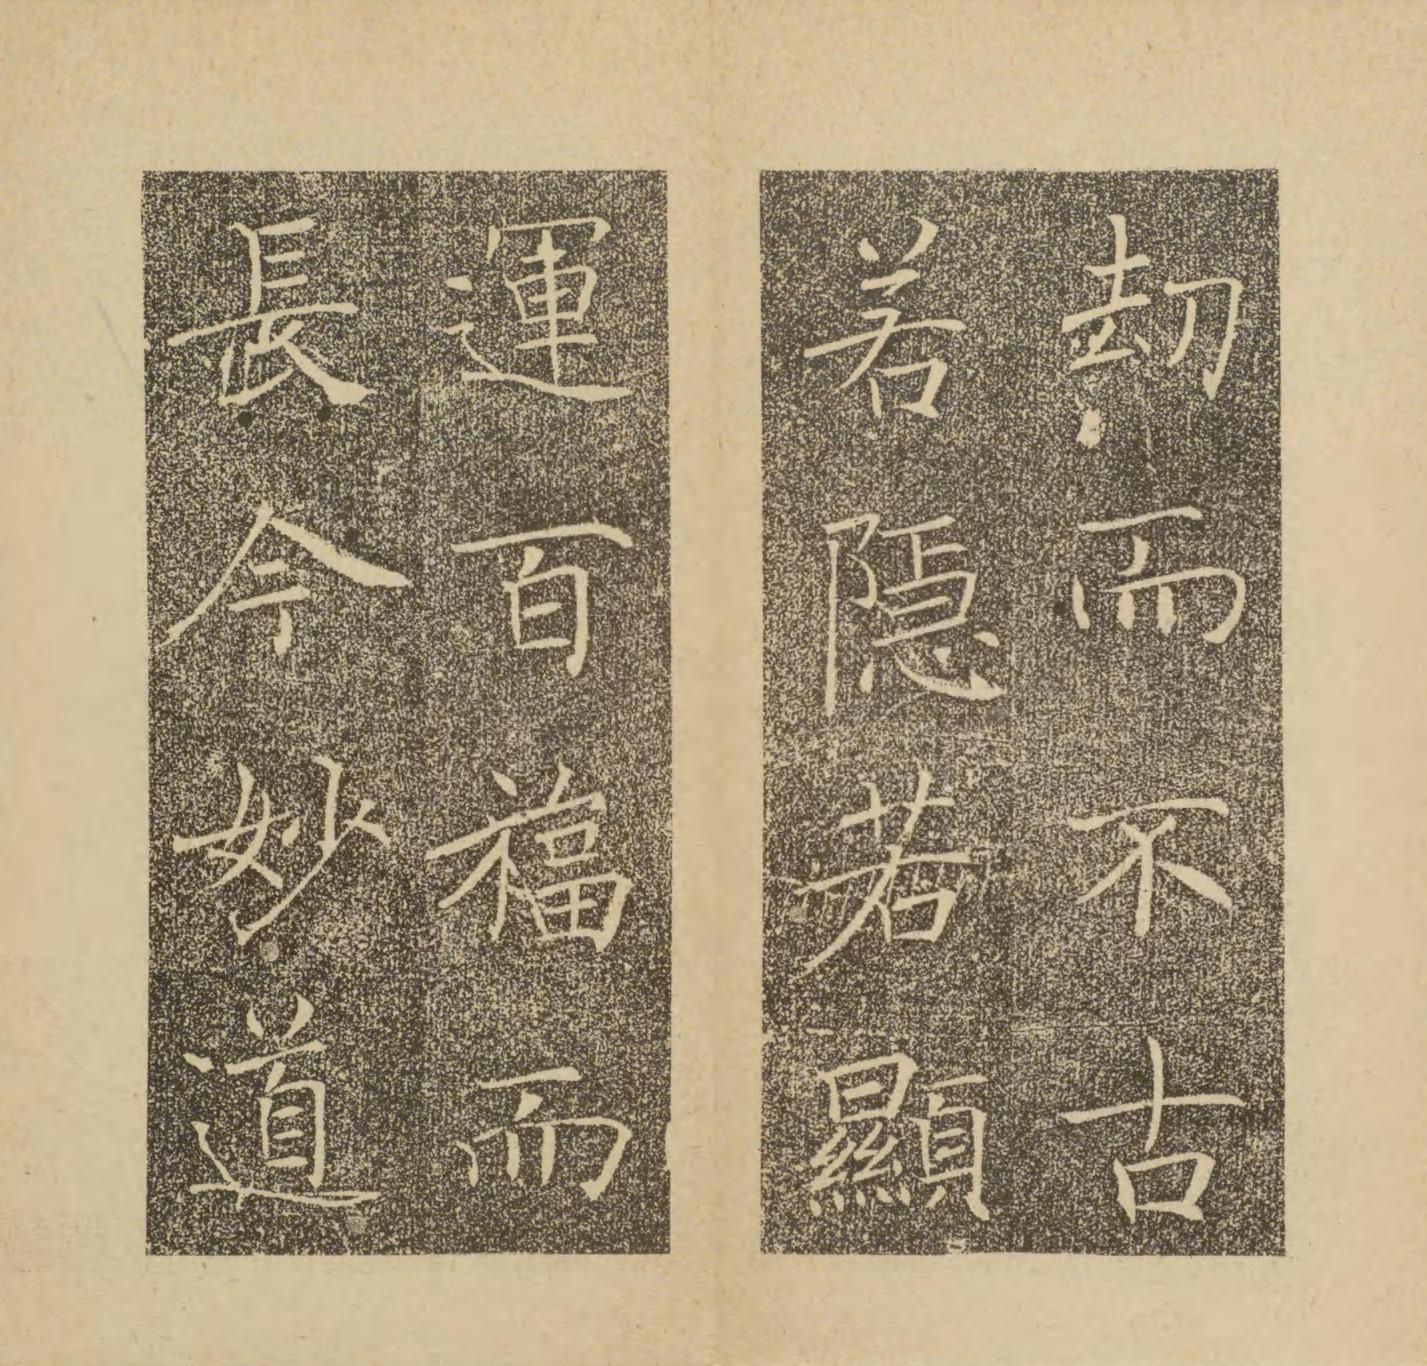 劫而不古
若隱若顯
運百福而
長今妙道